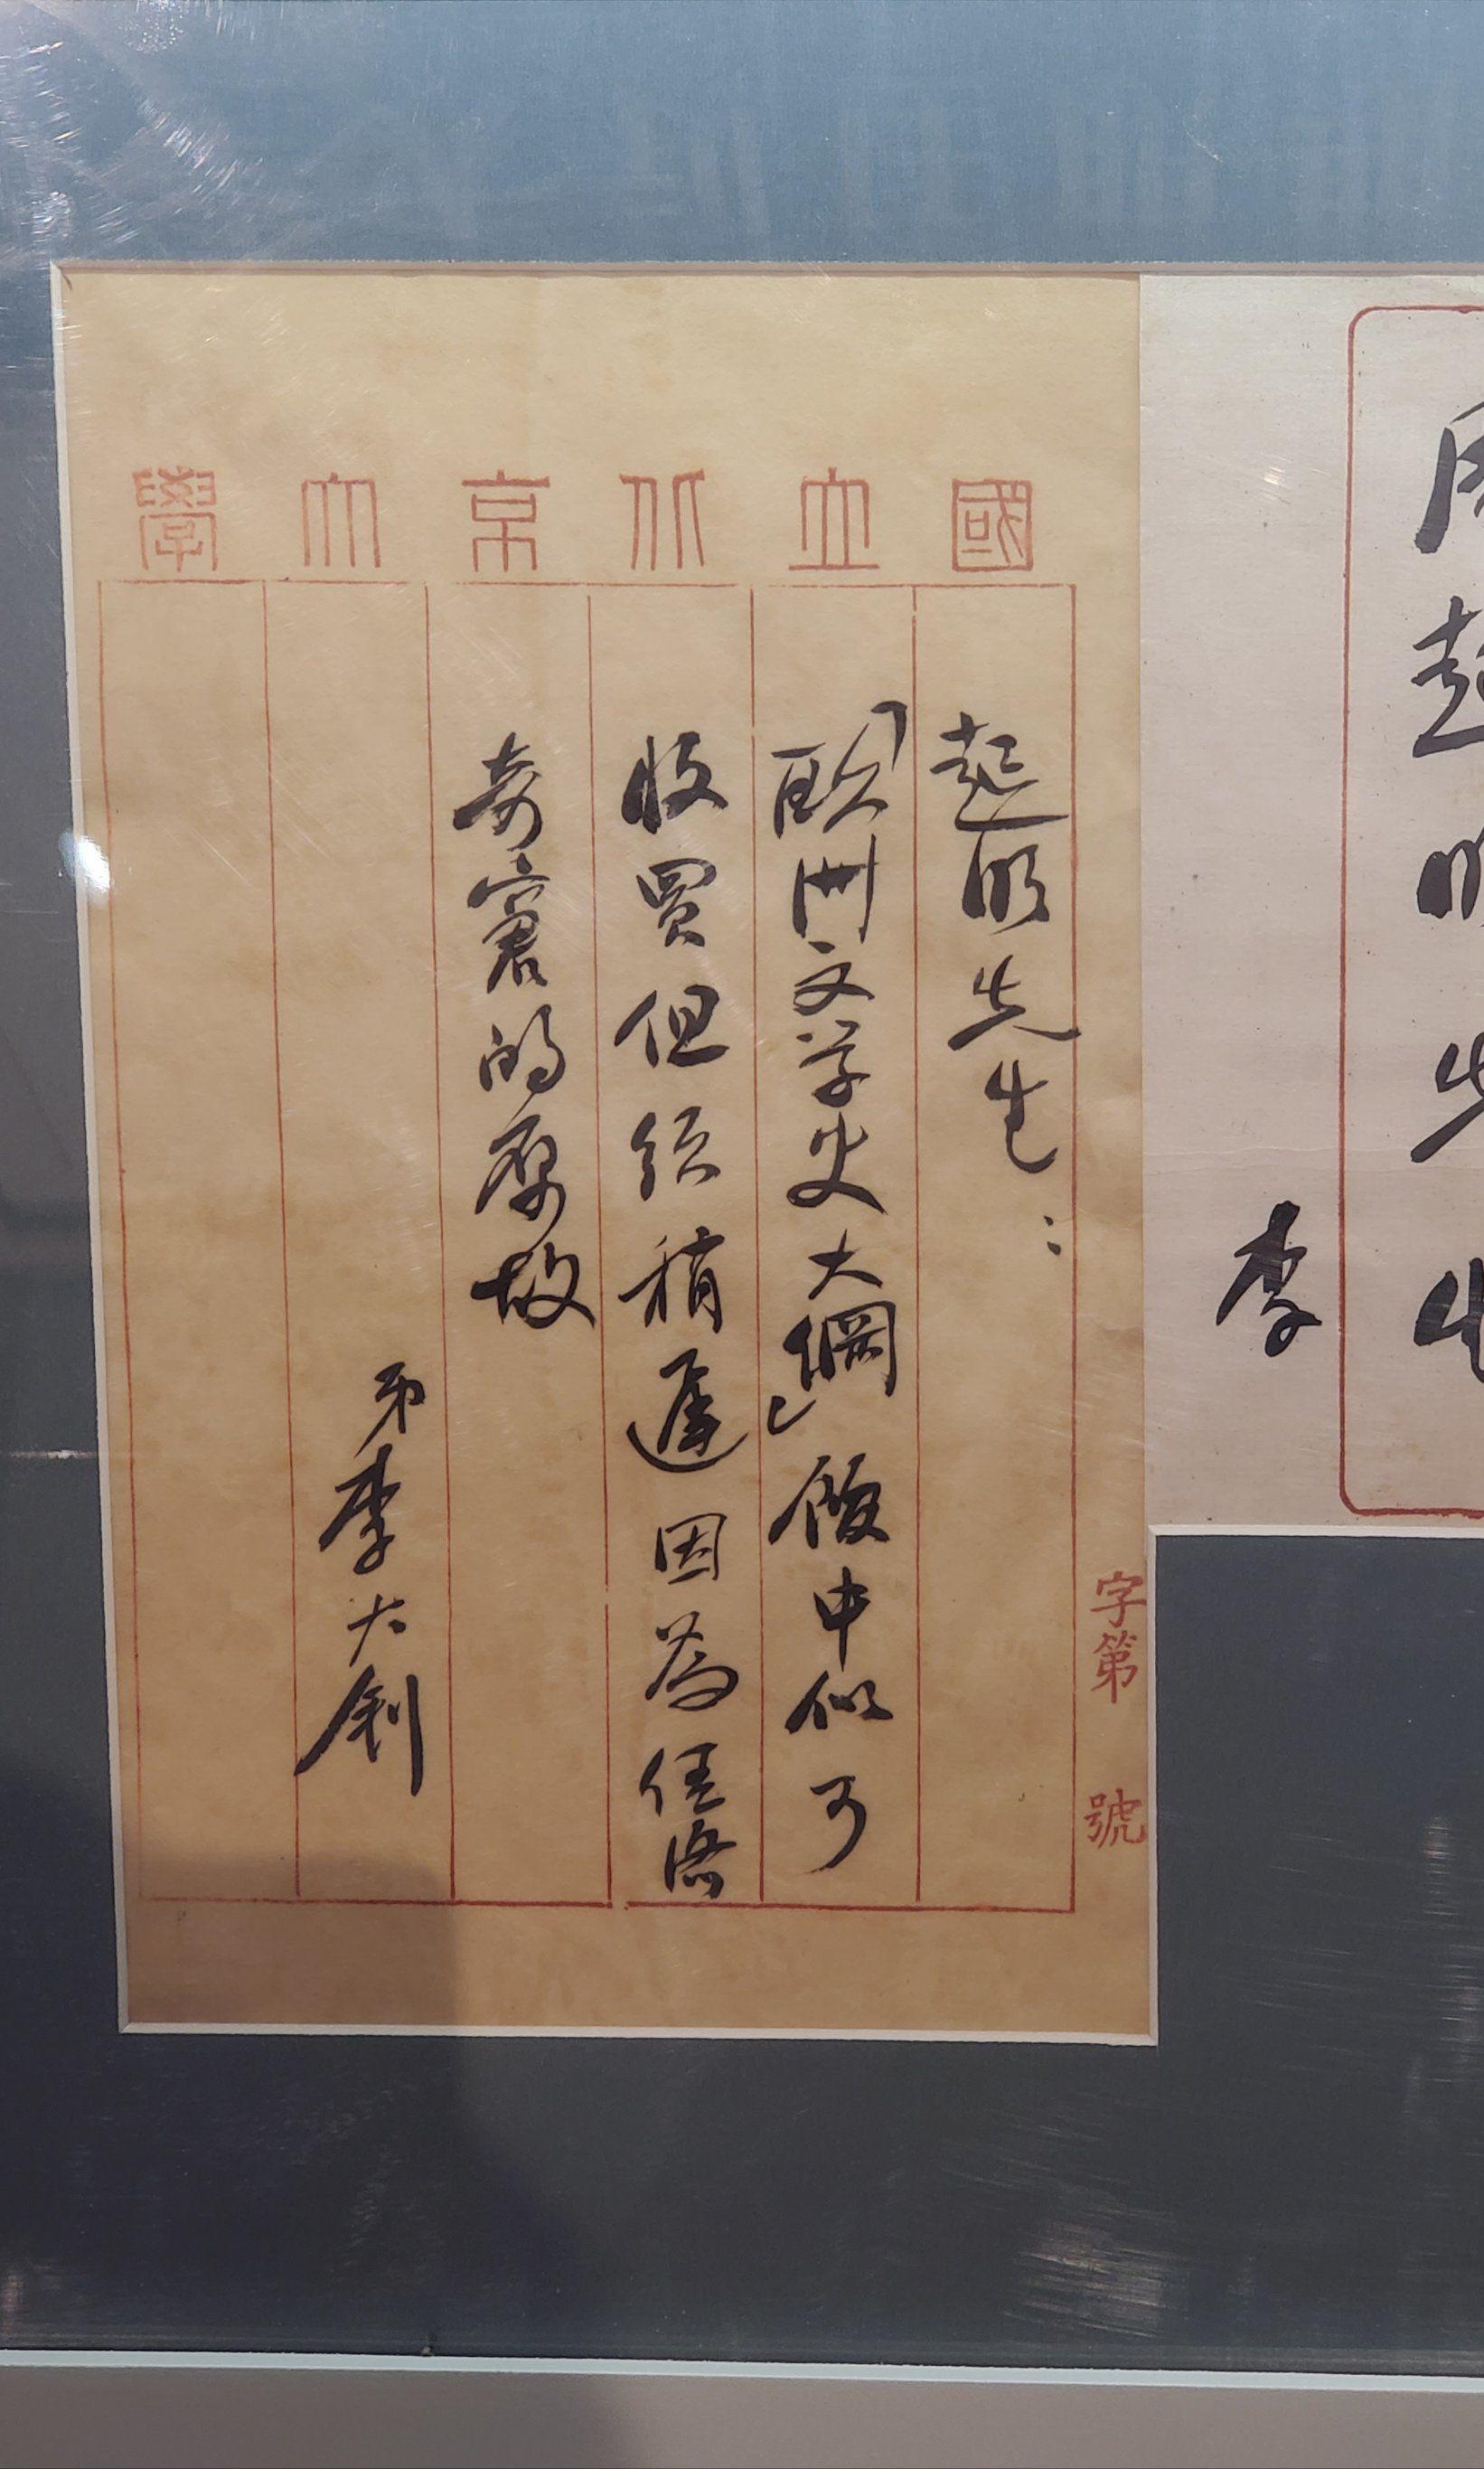 周起明先生
李
字第 號
國立北京大學
起明先生：
「欧洲文学史大綱」館中似可
收買但须稍遲因為經濟
奇窘的原故
弟李大釗